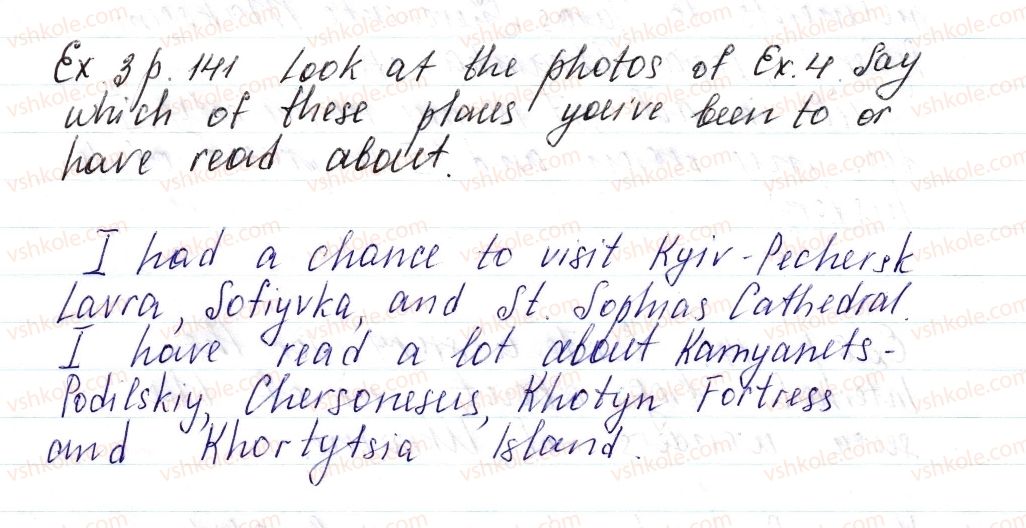 Ex. 3 p. 141 Look at the photos of Ex. 4. Say
which of these places you've been to or
have read about.
I had a chance to visit Kyiv-Pechersk
Lavra, Sofiyvka, and St. Sophias Cathedral.
I have read a lot about Kamyanets-
Podilskiy, Chersonesus, Khotyn Fortress
and Khortytsia Island.